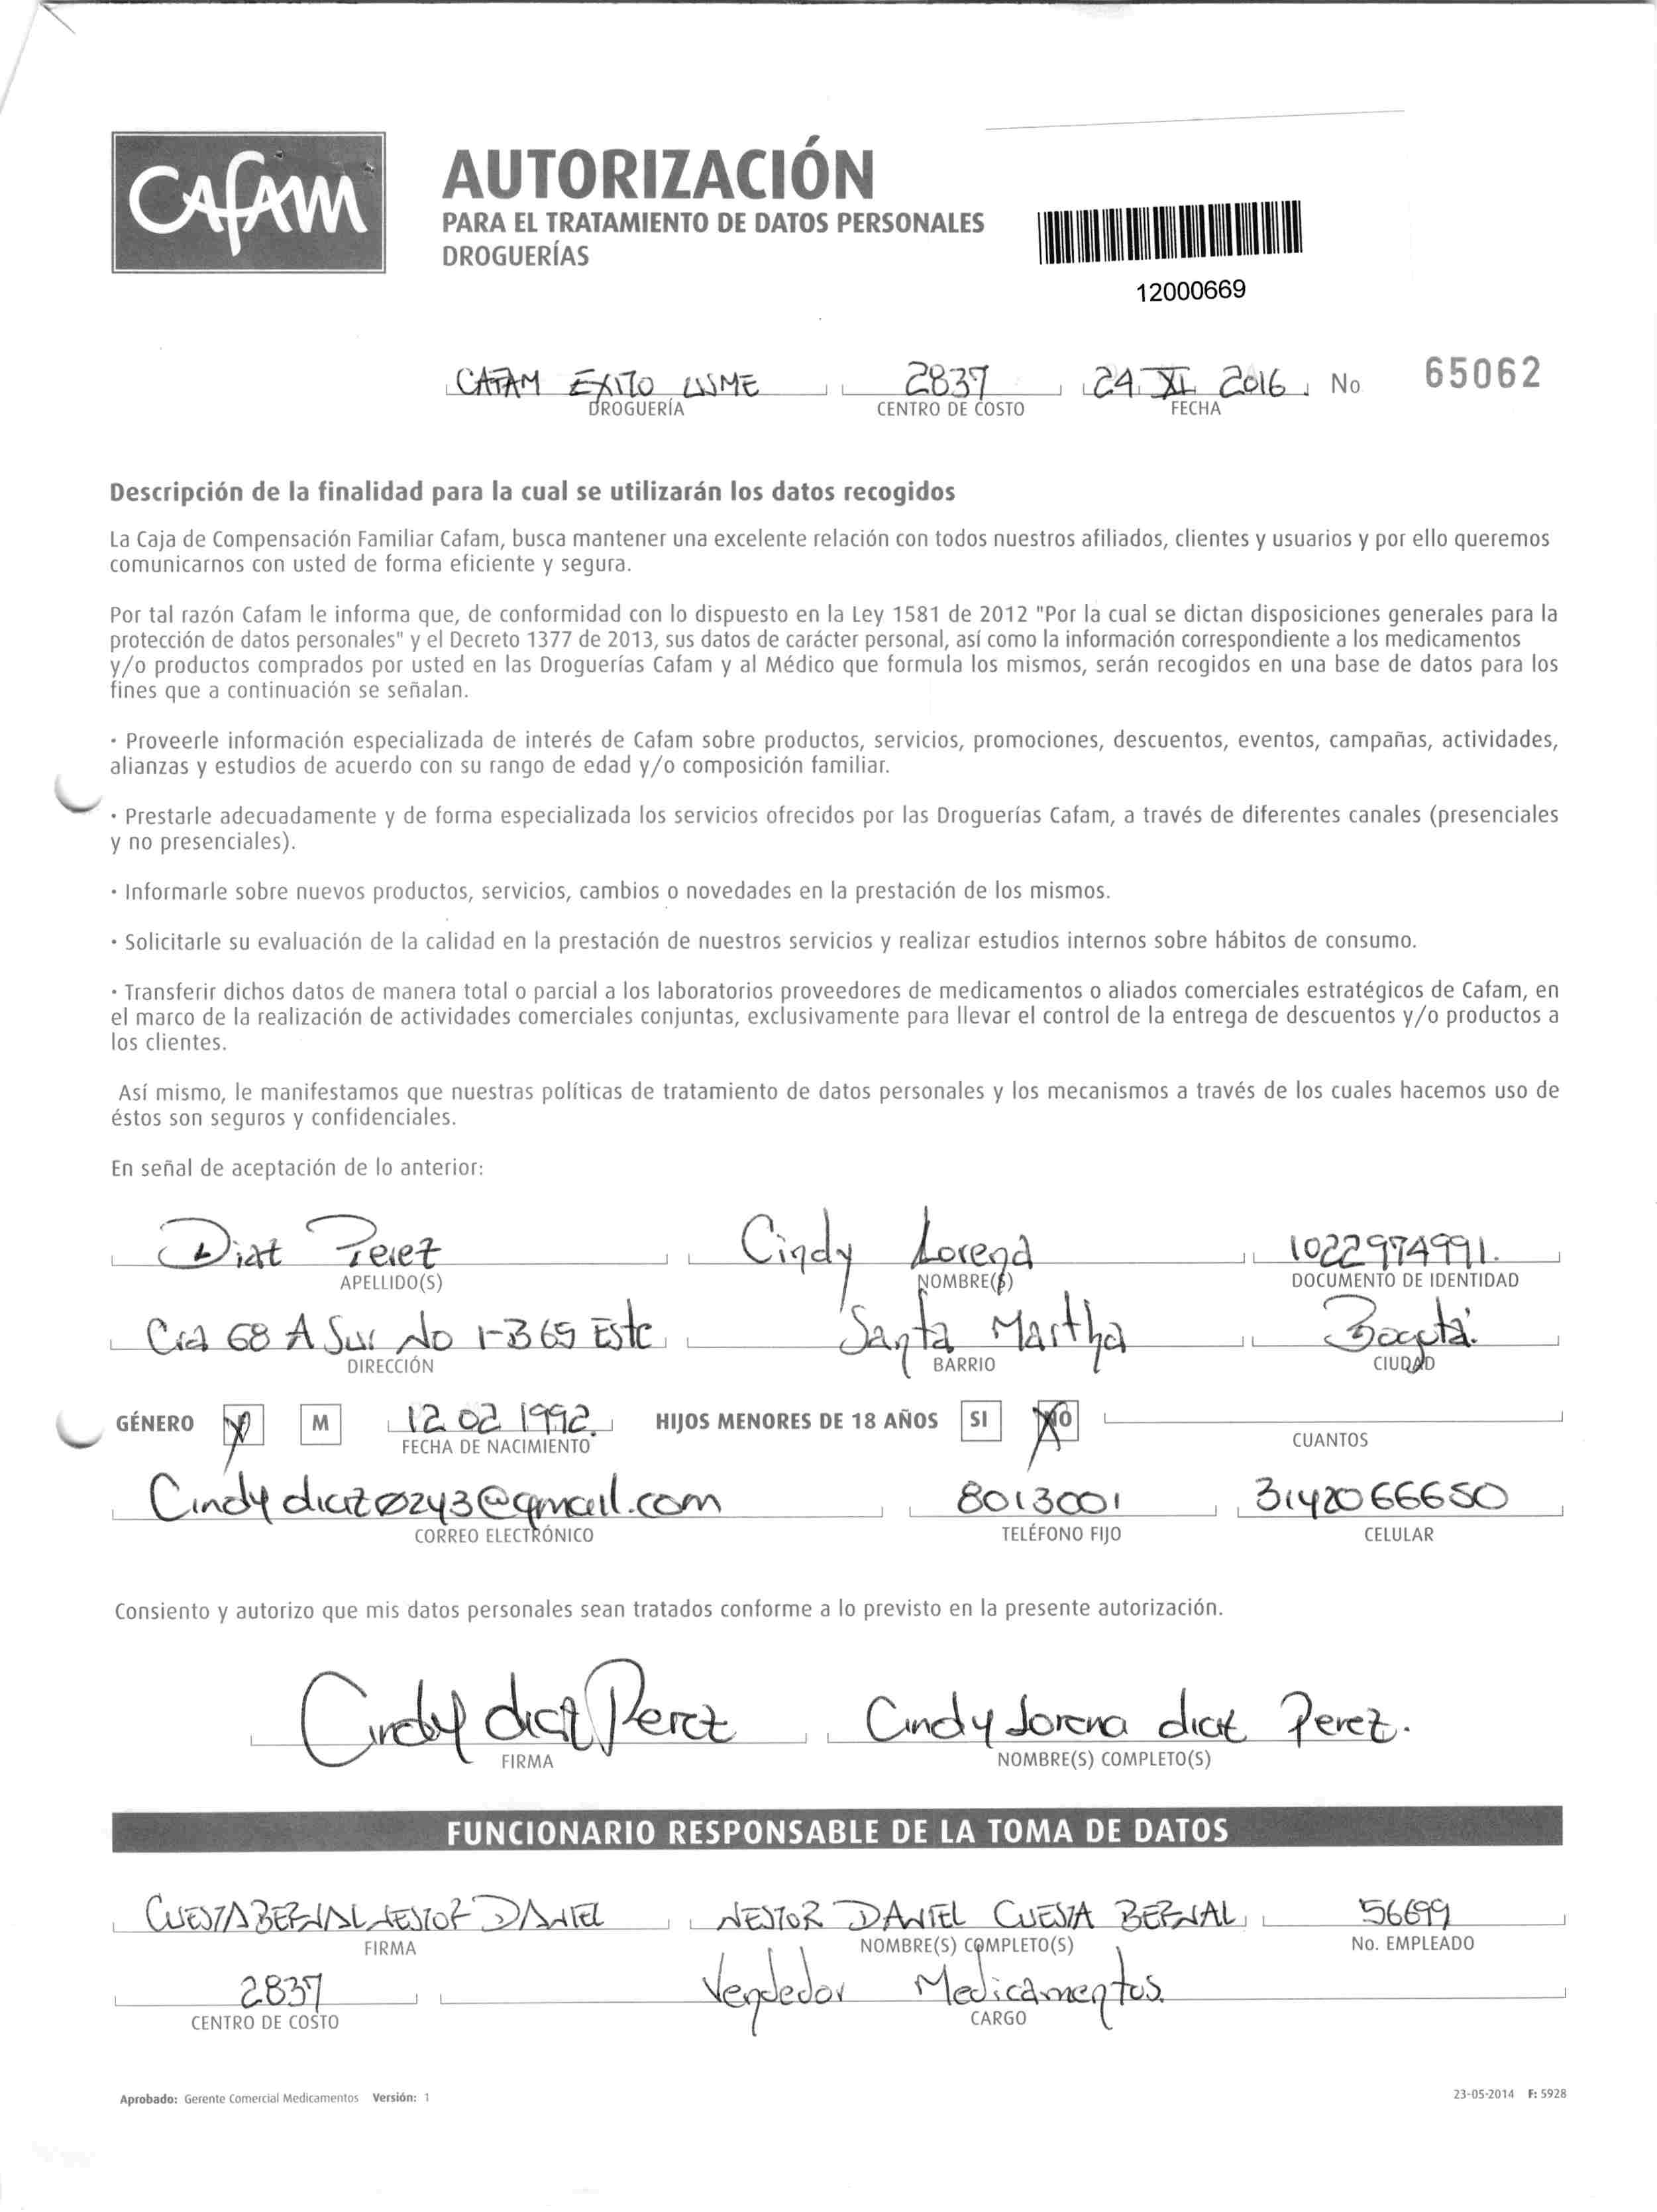 Cafam
AUTORIZACIÓN
PARA EL TRATAMIENTO DE DATOS PERSONALES
DROGUERÍAS
12000669
CAFAM EXITO USME 2837 24 XI 2016 No 65062
DROGUERÍA CENTRO DE COSTO FECHA
Descripción de la finalidad para la cual se utilizarán los datos recogidos
La Caja de Compensación Familiar Cafam, busca mantener una excelente relación con todos nuestros afiliados, clientes y usuarios y por ello queremos
comunicarnos con usted de forma eficiente y segura.
Por tal razón Cafam le informa que, de conformidad con lo dispuesto en la Ley 1581 de 2012 "Por la cual se dictan disposiciones generales para la
protección de datos personales" y el Decreto 1377 de 2013, sus datos de carácter personal, así como la información correspondiente a los medicamentos
y/o productos comprados por usted en las Droguerías Cafam y al Médico que formula los mismos, serán recogidos en una base de datos para los
fines que a continuación se señalan.
· Proveerle información especializada de interés de Cafam sobre productos, servicios, promociones, descuentos, eventos, campañas, actividades,
alianzas y estudios de acuerdo con su rango de edad y/o composición familiar.
· Prestarle adecuadamente y de forma especializada los servicios ofrecidos por las Droguerías Cafam, a través de diferentes canales (presenciales
y no presenciales).
· Informarle sobre nuevos productos, servicios, cambios o novedades en la prestación de los mismos.
· Solicitarle su evaluación de la calidad en la prestación de nuestros servicios y realizar estudios internos sobre hábitos de consumo.
· Transferir dichos datos de manera total o parcial a los laboratorios proveedores de medicamentos o aliados comerciales estratégicos de Cafam, en
el marco de la realización de actividades comerciales conjuntas, exclusivamente para llevar el control de la entrega de descuentos y/o productos a
los clientes.
Así mismo, le manifestamos que nuestras políticas de tratamiento de datos personales y los mecanismos a través de los cuales hacemos uso de
éstos son seguros y confidenciales.
En señal de aceptación de lo anterior:
Diaz Perez Cindy Lorena 1022974991.
APELLIDO(S) NOMBRE(S) DOCUMENTO DE IDENTIDAD
Cra 68 A Sur No 1-365 Este Santa Martha Bogotá
DIRECCIÓN BARRIO CIUDAD
GÉNERO F M 12 02 1992. HIJOS MENORES DE 18 AÑOS SI NO
FECHA DE NACIMIENTO CUANTOS
Cindydiaz0243@gmail.com 8013001 3142066650
CORREO ELECTRÓNICO TELÉFONO FIJO CELULAR
Consiento y autorizo que mis datos personales sean tratados conforme a lo previsto en la presente autorización.
Cindy diaz Perez Cindy Lorena diaz Perez.
FIRMA NOMBRE(S) COMPLETO(S)
FUNCIONARIO RESPONSABLE DE LA TOMA DE DATOS
CUESTA BERNAL NESTOR DANIEL NESTOR DANIEL CUESTA BERNAL 56699
FIRMA NOMBRE(S) COMPLETO(S) No. EMPLEADO
2837 Vendedor Medicamentos.
CENTRO DE COSTO CARGO
Aprobado: Gerente Comercial Medicamentos Versión: 1 23-05-2014 F: 5928